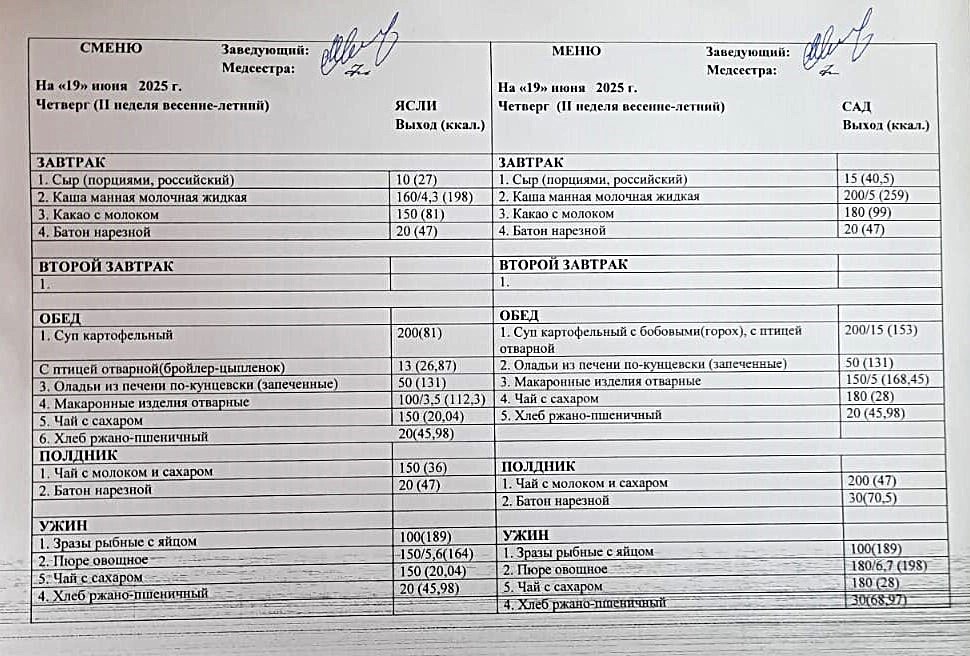 СМЕНЮ
Заведующий:
Медсестра:
На «19» июня 2025 г.
Четверг (II неделя весенне-летний) ЯСЛИ
Выход (ккал.)
ЗАВТРАК
1. Сыр (порциями, российский) 10 (27)
2. Каша манная молочная жидкая 160/4,3 (198)
3. Какао с молоком 150 (81)
4. Батон нарезной 20 (47)
ВТОРОЙ ЗАВТРАК
1.
ОБЕД
1. Суп картофельный 200(81)
С птицей отварной(бройлер-цыпленок) 13 (26,87)
3. Оладьи из печени по-кунцевски (запеченные) 50 (131)
4. Макаронные изделия отварные 100/3,5 (112,3)
5. Чай с сахаром 150 (20,04)
6. Хлеб ржано-пшеничный 20(45,98)
ПОЛДНИК
1. Чай с молоком и сахаром 150 (36)
2. Батон нарезной 20 (47)
УЖИН
1. Зразы рыбные с яйцом 100(189)
2. Пюре овощное 150/5,6(164)
5. Чай с сахаром 150 (20,04)
4. Хлеб ржано-пшеничный 20 (45,98)
МЕНЮ
Заведующий:
Медсестра:
На «19» июня 2025 г.
Четверг (II неделя весенне-летний) САД
Выход (ккал.)
ЗАВТРАК
1. Сыр (порциями, российский) 15 (40,5)
2. Каша манная молочная жидкая 200/5 (259)
3. Какао с молоком 180 (99)
4. Батон нарезной 20 (47)
ВТОРОЙ ЗАВТРАК
1.
ОБЕД
1. Суп картофельный с бобовыми(горох), с птицей 200/15 (153)
отварной
2. Оладьи из печени по-кунцевски (запеченные) 50 (131)
3. Макаронные изделия отварные 150/5 (168,45)
4. Чай с сахаром 180 (28)
5. Хлеб ржано-пшеничный 20 (45,98)
ПОЛДНИК
1. Чай с молоком и сахаром 200 (47)
2. Батон нарезной 30(70,5)
УЖИН
1. Зразы рыбные с яйцом 100(189)
2. Пюре овощное 180/6,7 (198)
5. Чай с сахаром 180 (28)
4. Хлеб ржано-пшеничный 30(68,97)